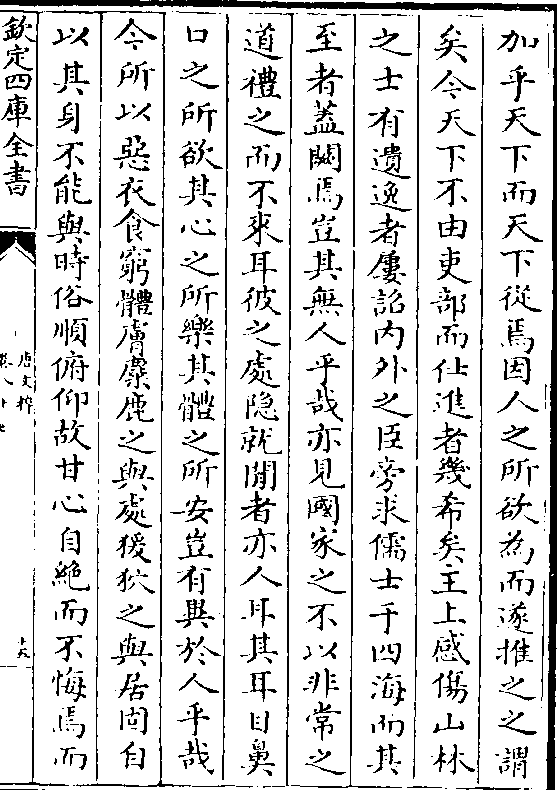 加乎天下而天下從焉因人之所欲為而遂推之之謂
矣今天下不由吏部而仕進者幾希矣主上感傷山林
之士有遺逸者屢詔内外之臣旁求儒士于四海而其
至者蓋闕焉豈其無人乎哉亦見國家之不以非常之
道禮之而不來耳彼之處隐就閒者亦人耳其耳目鼻
口之所欲其心之所樂其體之所安豈有異於人乎哉
今所以惡衣食窮體膚麋鹿之與處猨狖之與居固自
以其身不能與時俗順俯仰故甘心自絶而不悔焉而
欽定四庫全書
唐文粹